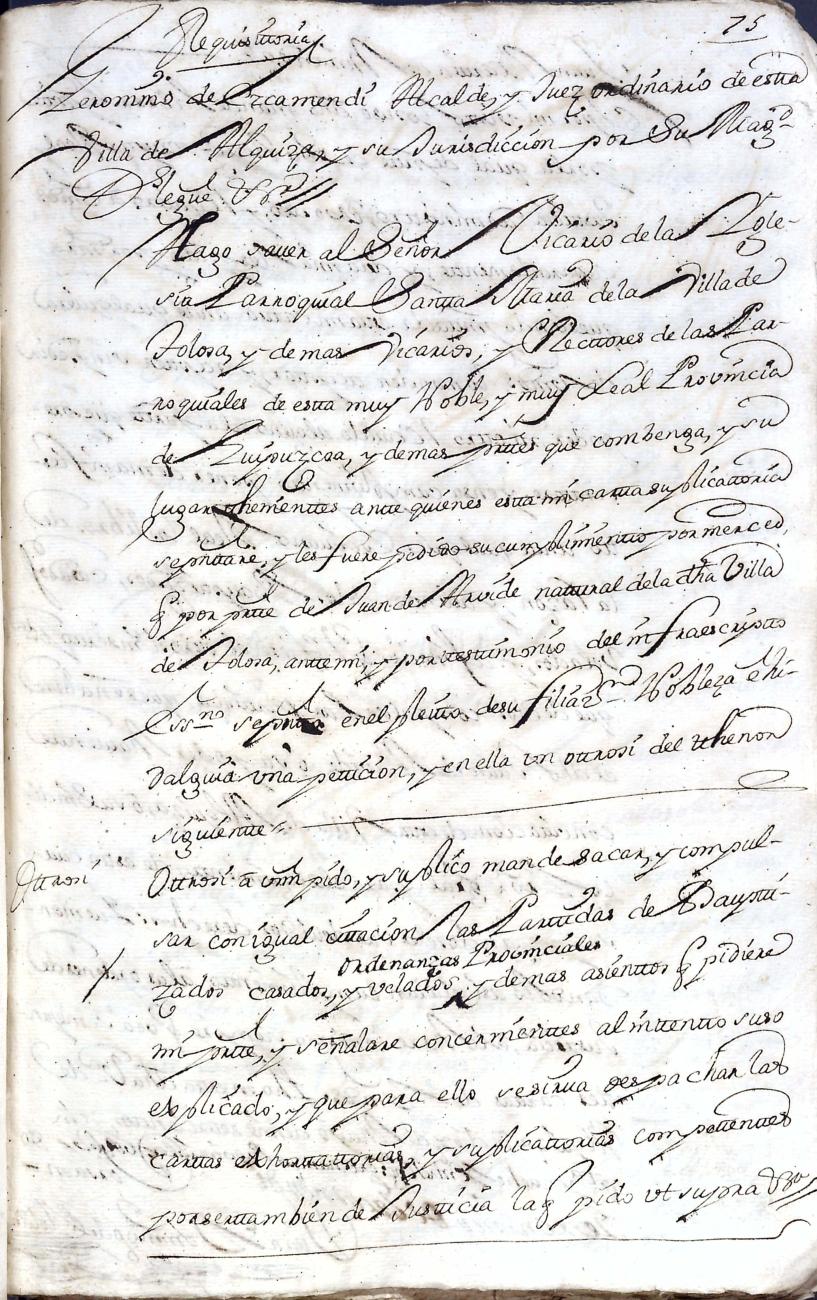 75
Requisitoria
Jeronimo de Ezcamendi Alcalde, y Juez ordinario de esta
Villa de Alquiza, y su Jurisdiccion por Su Magd.
Dios legue &ra
Hago saver al Señor Vicario de la Igle-
sia Parroquial Santa Maria de la Villa de
Tolosa, y demas Vicarios, y Rectores de las Par-
roquiales de esta muy Noble, y muy Leal Provincia
de Guipuzcoa, y demas prttes que combenga, y su
lugar thenienttes antte quienes estta mi cartta suplicattoria
sepnttare, y les fuere pedido su cumplimientto por merced,
q por prtte de Juan de Arvide nattural de la dha Villa
de Tolosa, antte mi, y por testtimonio del infraescriptto
Essno sepntto en el pleitto de su filiazon Nobleza e hi-
dalguia una peticion, y en ella un ottrosi del thenor
siguientte
Ottrosi
Ottrosi a vmd pido, y suplico mande sacar, y compul-
sar con igual cittacion las Parttidas de Bauptti-
Ordenanzas Provinciales
zados casados, y velados, y demas asienttos q pidiere
mi prtte, y señalare concernienttes al inttentto suso
explicado, y que para ello se sirva despachar las
carttas exhorttattorias, y suplicattorias compettenttes
por ser tambien de Justicia la q pido ut supra &ra